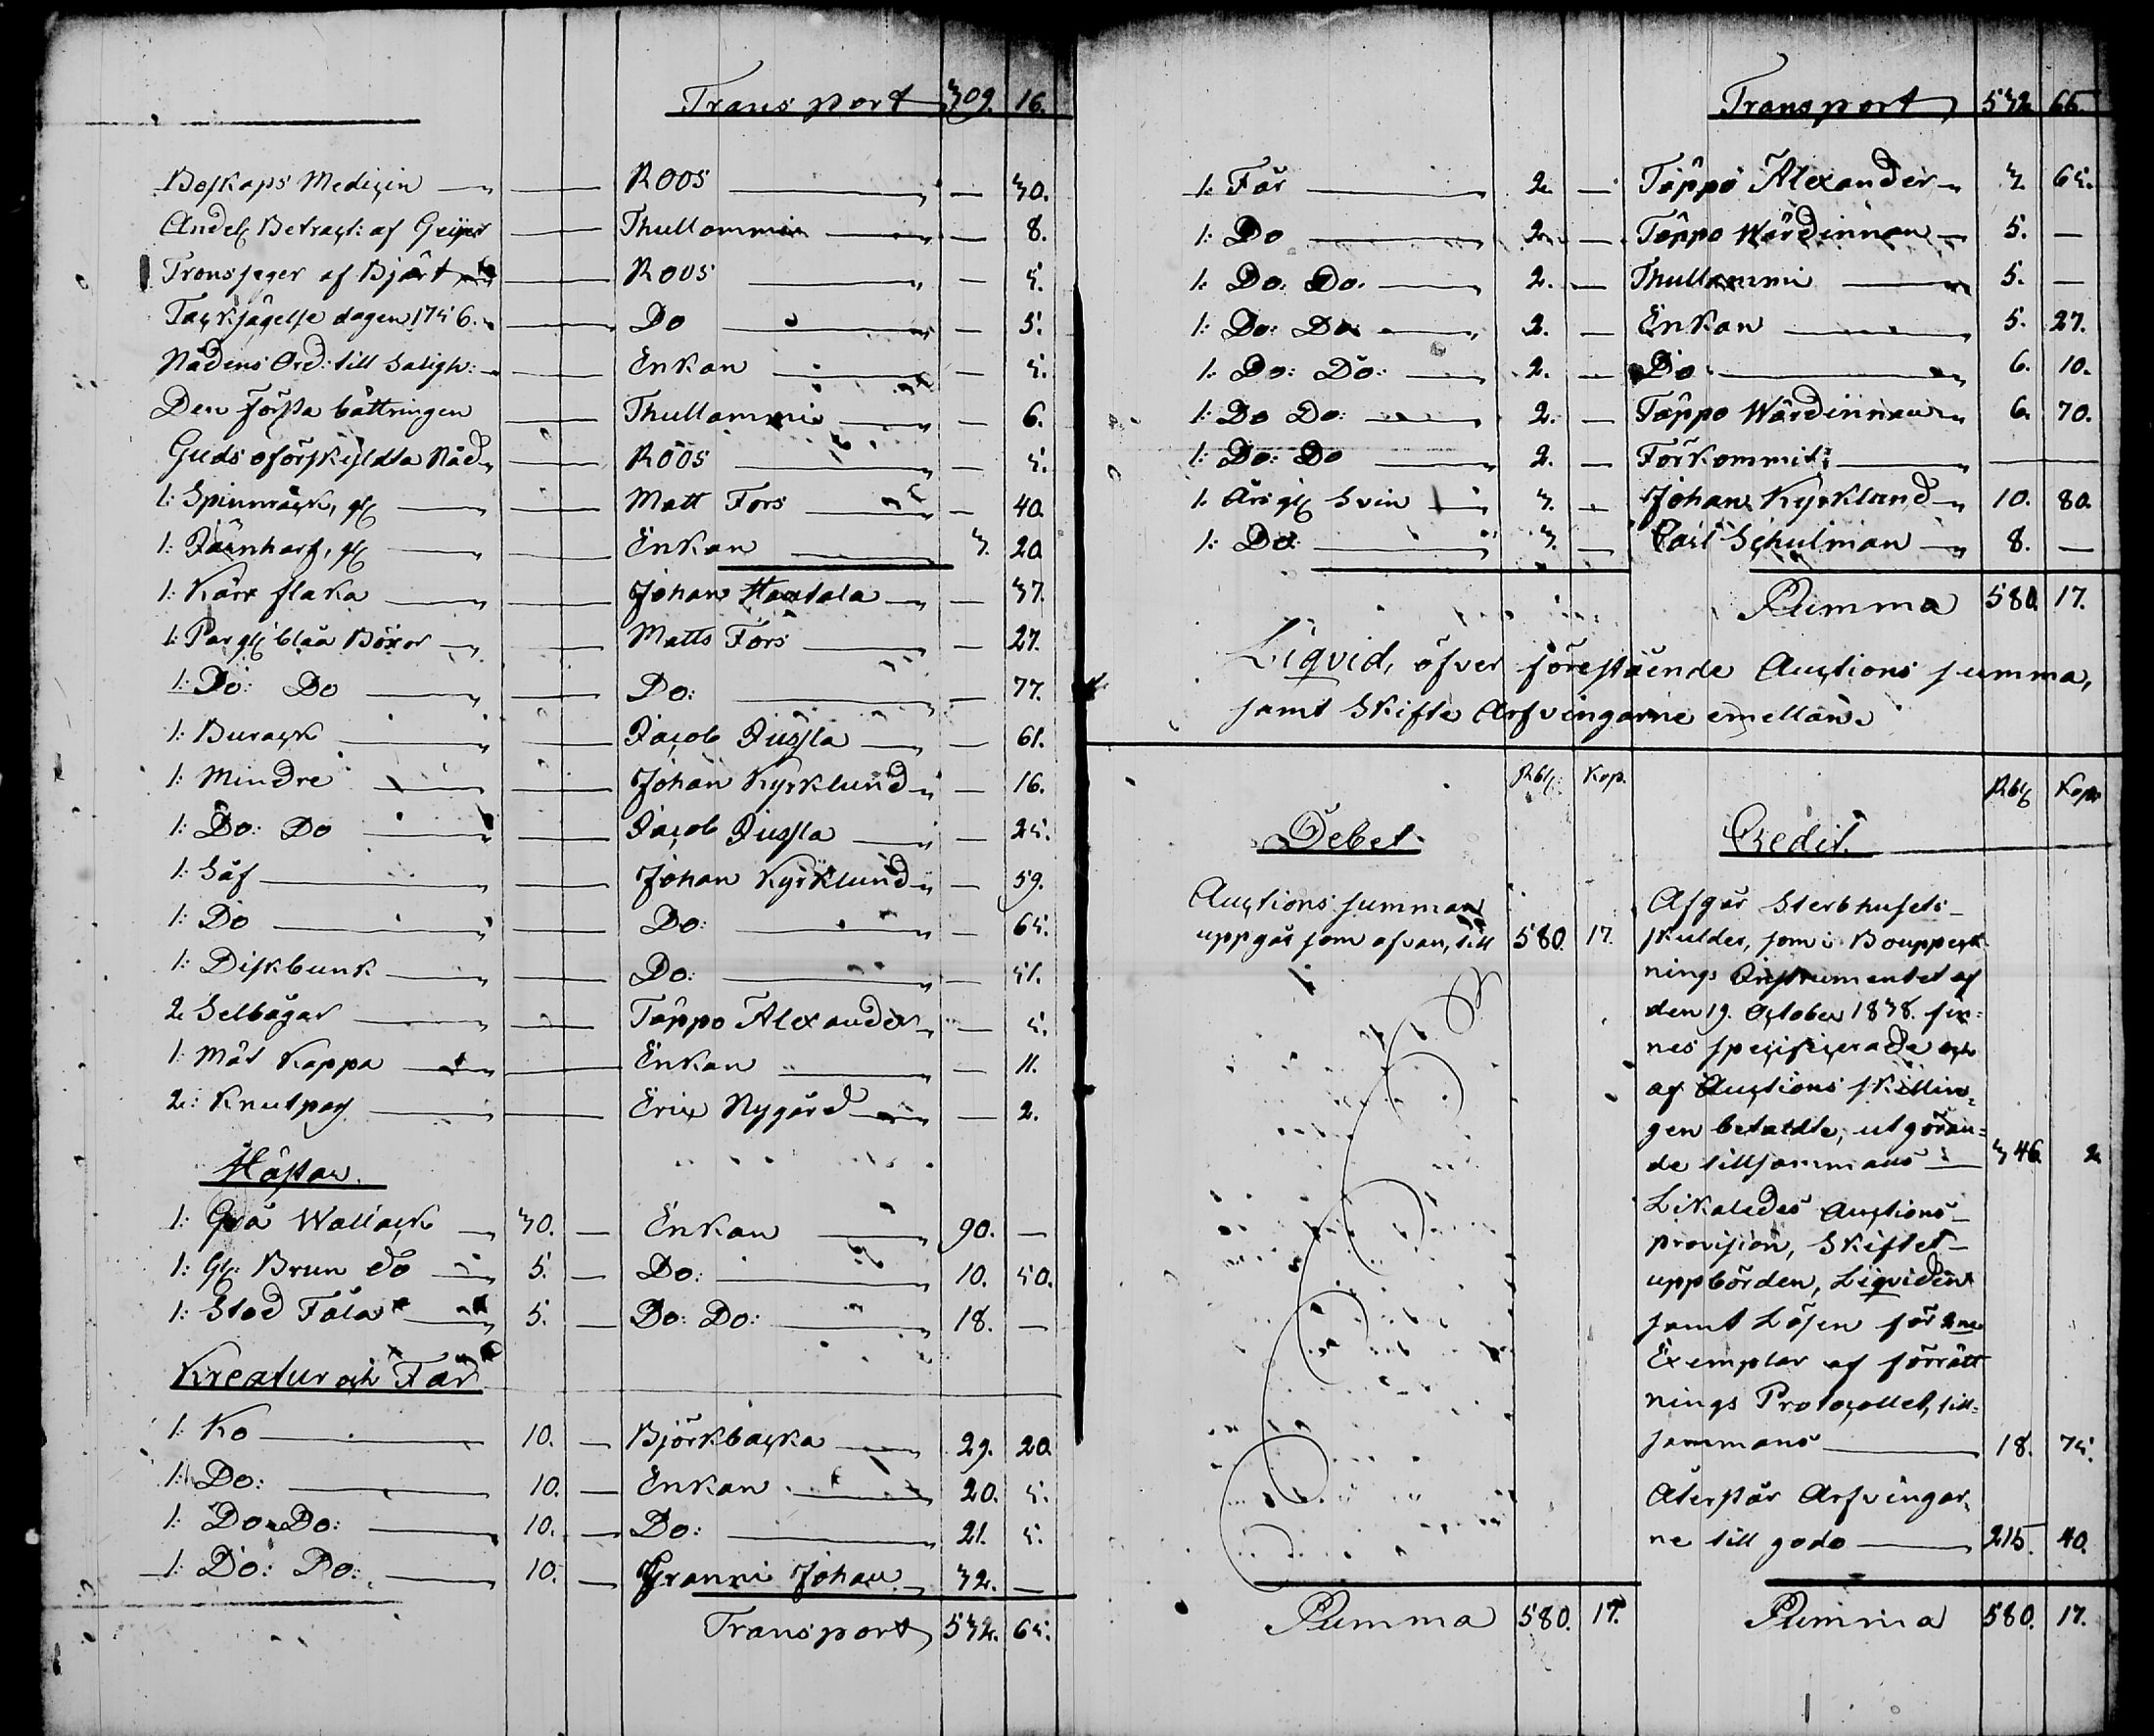 Transport 309. 16.
Boskaps Medicin — Roos — 30.
Andel: Betragt: af Geijer — Thullammin — 8.
af Bjärt — Roos — 5.
Tacksägelse dagen 1756. — Do — 5.
Nådens Ord: till Saligh: — Enkan — 5.
Den förssta bättringen — Thullammi — 6.
Guds oförskyldta Nåd — Roos — 5.
1: Spinnråck, gl — Matt Fors — 40.
1: Järnharf, gl — Enkan 3. 20.
1: Kärr flaka — Johan Haatala — 37.
1: Par gl: blåa Böxor — Matts Fors — 27.
1: Do: Do — Do: — 77.
1: Burack — Jacob Jussla — 61.
1: Mindre — Johan Kyrklund — 16.
1: Do: Do — Jacob Jussla — 25.
1: Såf — Johan Kyrklund — 59.
1: Do — Do: — 65.
1: Diskbunk — Do: — 51.
2 Selbågar — Tåppo Alexander — 5.
1: Måt Kappa — Enkan — 11.
2: Knutpag — Eric Nygård — 2.
Hästar.
1: Grå Wallack 30. — Enkan 90. —
1: Gl: Brun do 5. — Do: 10. 50.
1: Stod Fåla 5. — Do: Do: 18. —
Kreatur och Får
1: Ko 10. — Björkbacka 29. 20.
1: Do: 10. — Enkan 20. 5.
1: Do: Do: 10. — Do: 21. 5.
1: Do: Do: 10. — Granni Johan 32. —
Transport 532. 65.
Transport 532 65.
1: Får 2. — Tåppo Alexander 3. 65.
1: Do 2. — Tåppo Wärdinnan 5. —
1: Do: Do. 2. — Thullammi 5. —
1: Do: Do 2. — Enkan 5. 27.
1: Do: Do: 2. — Do 6. 10.
1: Do Do: 2. — Tåppo Wärdinnan 6. 70.
1: Do: Do 2. — Förkommit: —
1: Års gl Svin 3. — Johan Kyrklund 10. 80.
1: Do: 3. — Carl Schulman 8. —
Summa 580. 17.
Liqvid, öfver förestående Auctions summa,
samt Skifte Arfvingarne emellan.
Rbl: Kop. Rbl Kop
Debet. Credit.
Auctions summan
uppgår som ofvan, till 580. 17.
Afgår Sterbhusets
skulder, som i Bouppteck
nings Instrumentet af
den 19. October 1838. fin=
nes specificerade och
af Auctions skillin=
gen betaldte, utgöran=
de tillsammans — 346. 2
Likaledes Auctions
provision, Skiftet
uppbörden, Liqviden
samt Lösen för 2ne
Exemplar af förrätt
nings Protocollet, till=
sammans — 18. 75.
Återstår Arfvingar
ne till godo — 215. 40.
Summa 580. 17. Summa 580. 17.